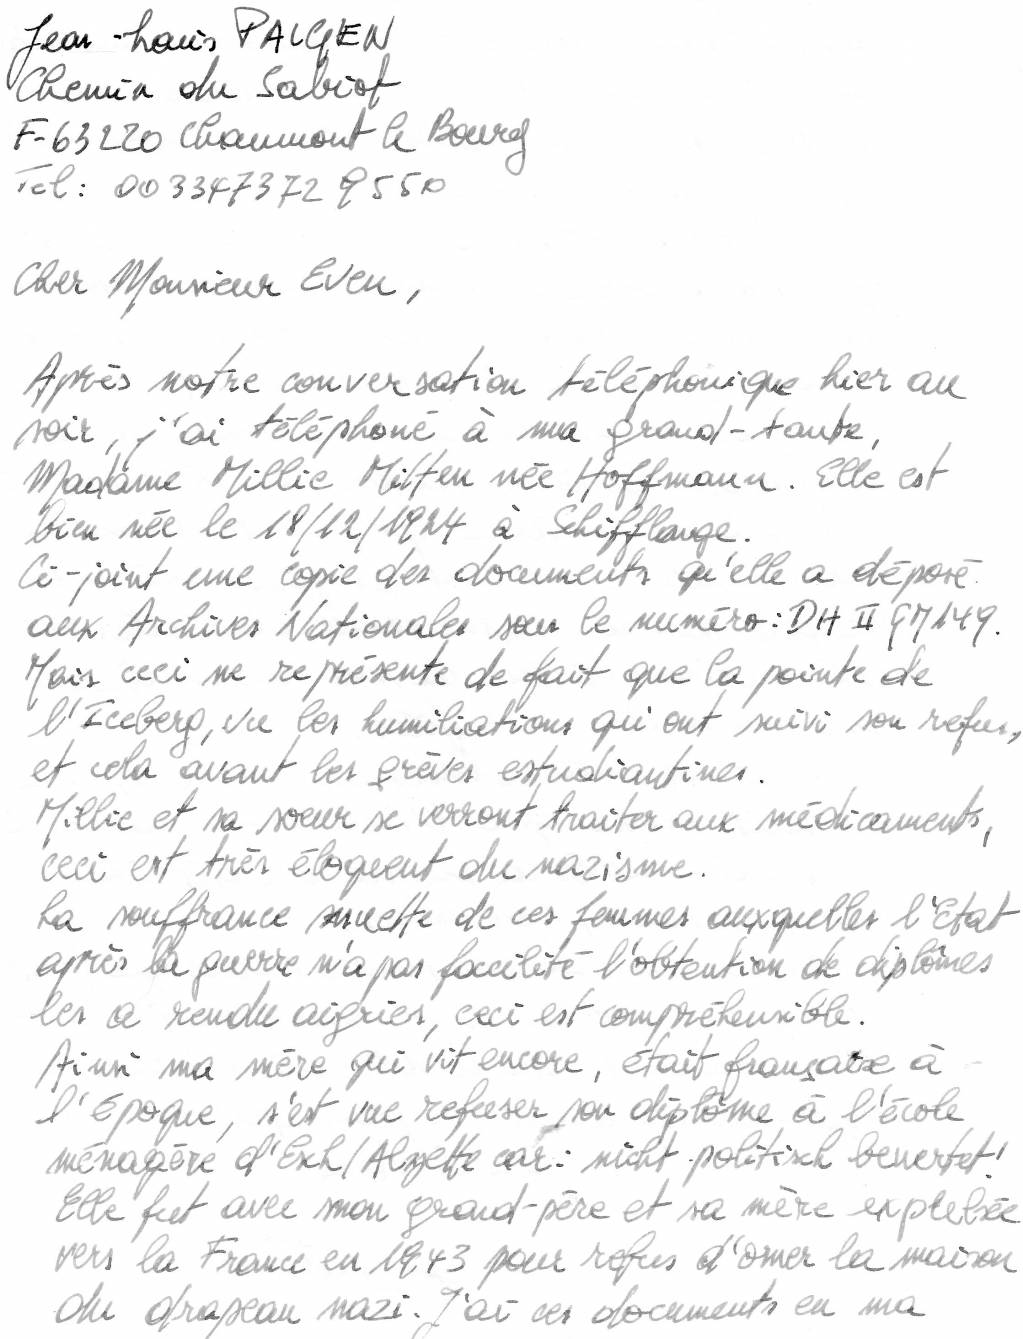 Jean-Louis PALGEN
Chemin du Sabiot
F-63220 Chaumont le Bourg
Tel: 0033473729550

Cher Monsieur Even,

Après notre conversation téléphonique hier au
soir, j'ai téléphoné à ma grand-tante,
Madame Millie Mitten née Hoffmann. Elle est
bien née le 18/12/1924 à Schifflange.
Ci-joint une copie des documents qu'elle a déposé
aux Archives Nationales sous le numéro: DH II GM149.
Mais ceci ne représente de fait que la pointe de
l'Iceberg, vu les humiliations qui ont suivi son refus,
et cela avant les grèves estudiantines.
Millie et sa soeur se verront traiter aux médicaments,
ceci est très éloquent du nazisme.
La souffrance muette de ces femmes auxquelles l'Etat
après la guerre n'a pas facilité l'obtention de diplômes
les a rendu aigries, ceci est compréhensible.
Ainsi ma mère qui vit encore, était française à
l'époque, s'est vue refuser son diplôme à l'école
ménagère d'Esch/Alzette car: nicht politisch bewertet!
Elle fut avec mon grand-père et sa mère expulsée
vers la France en 1943 pour refus d'orner la maison
du drapeau nazi. J'ai ces documents en ma